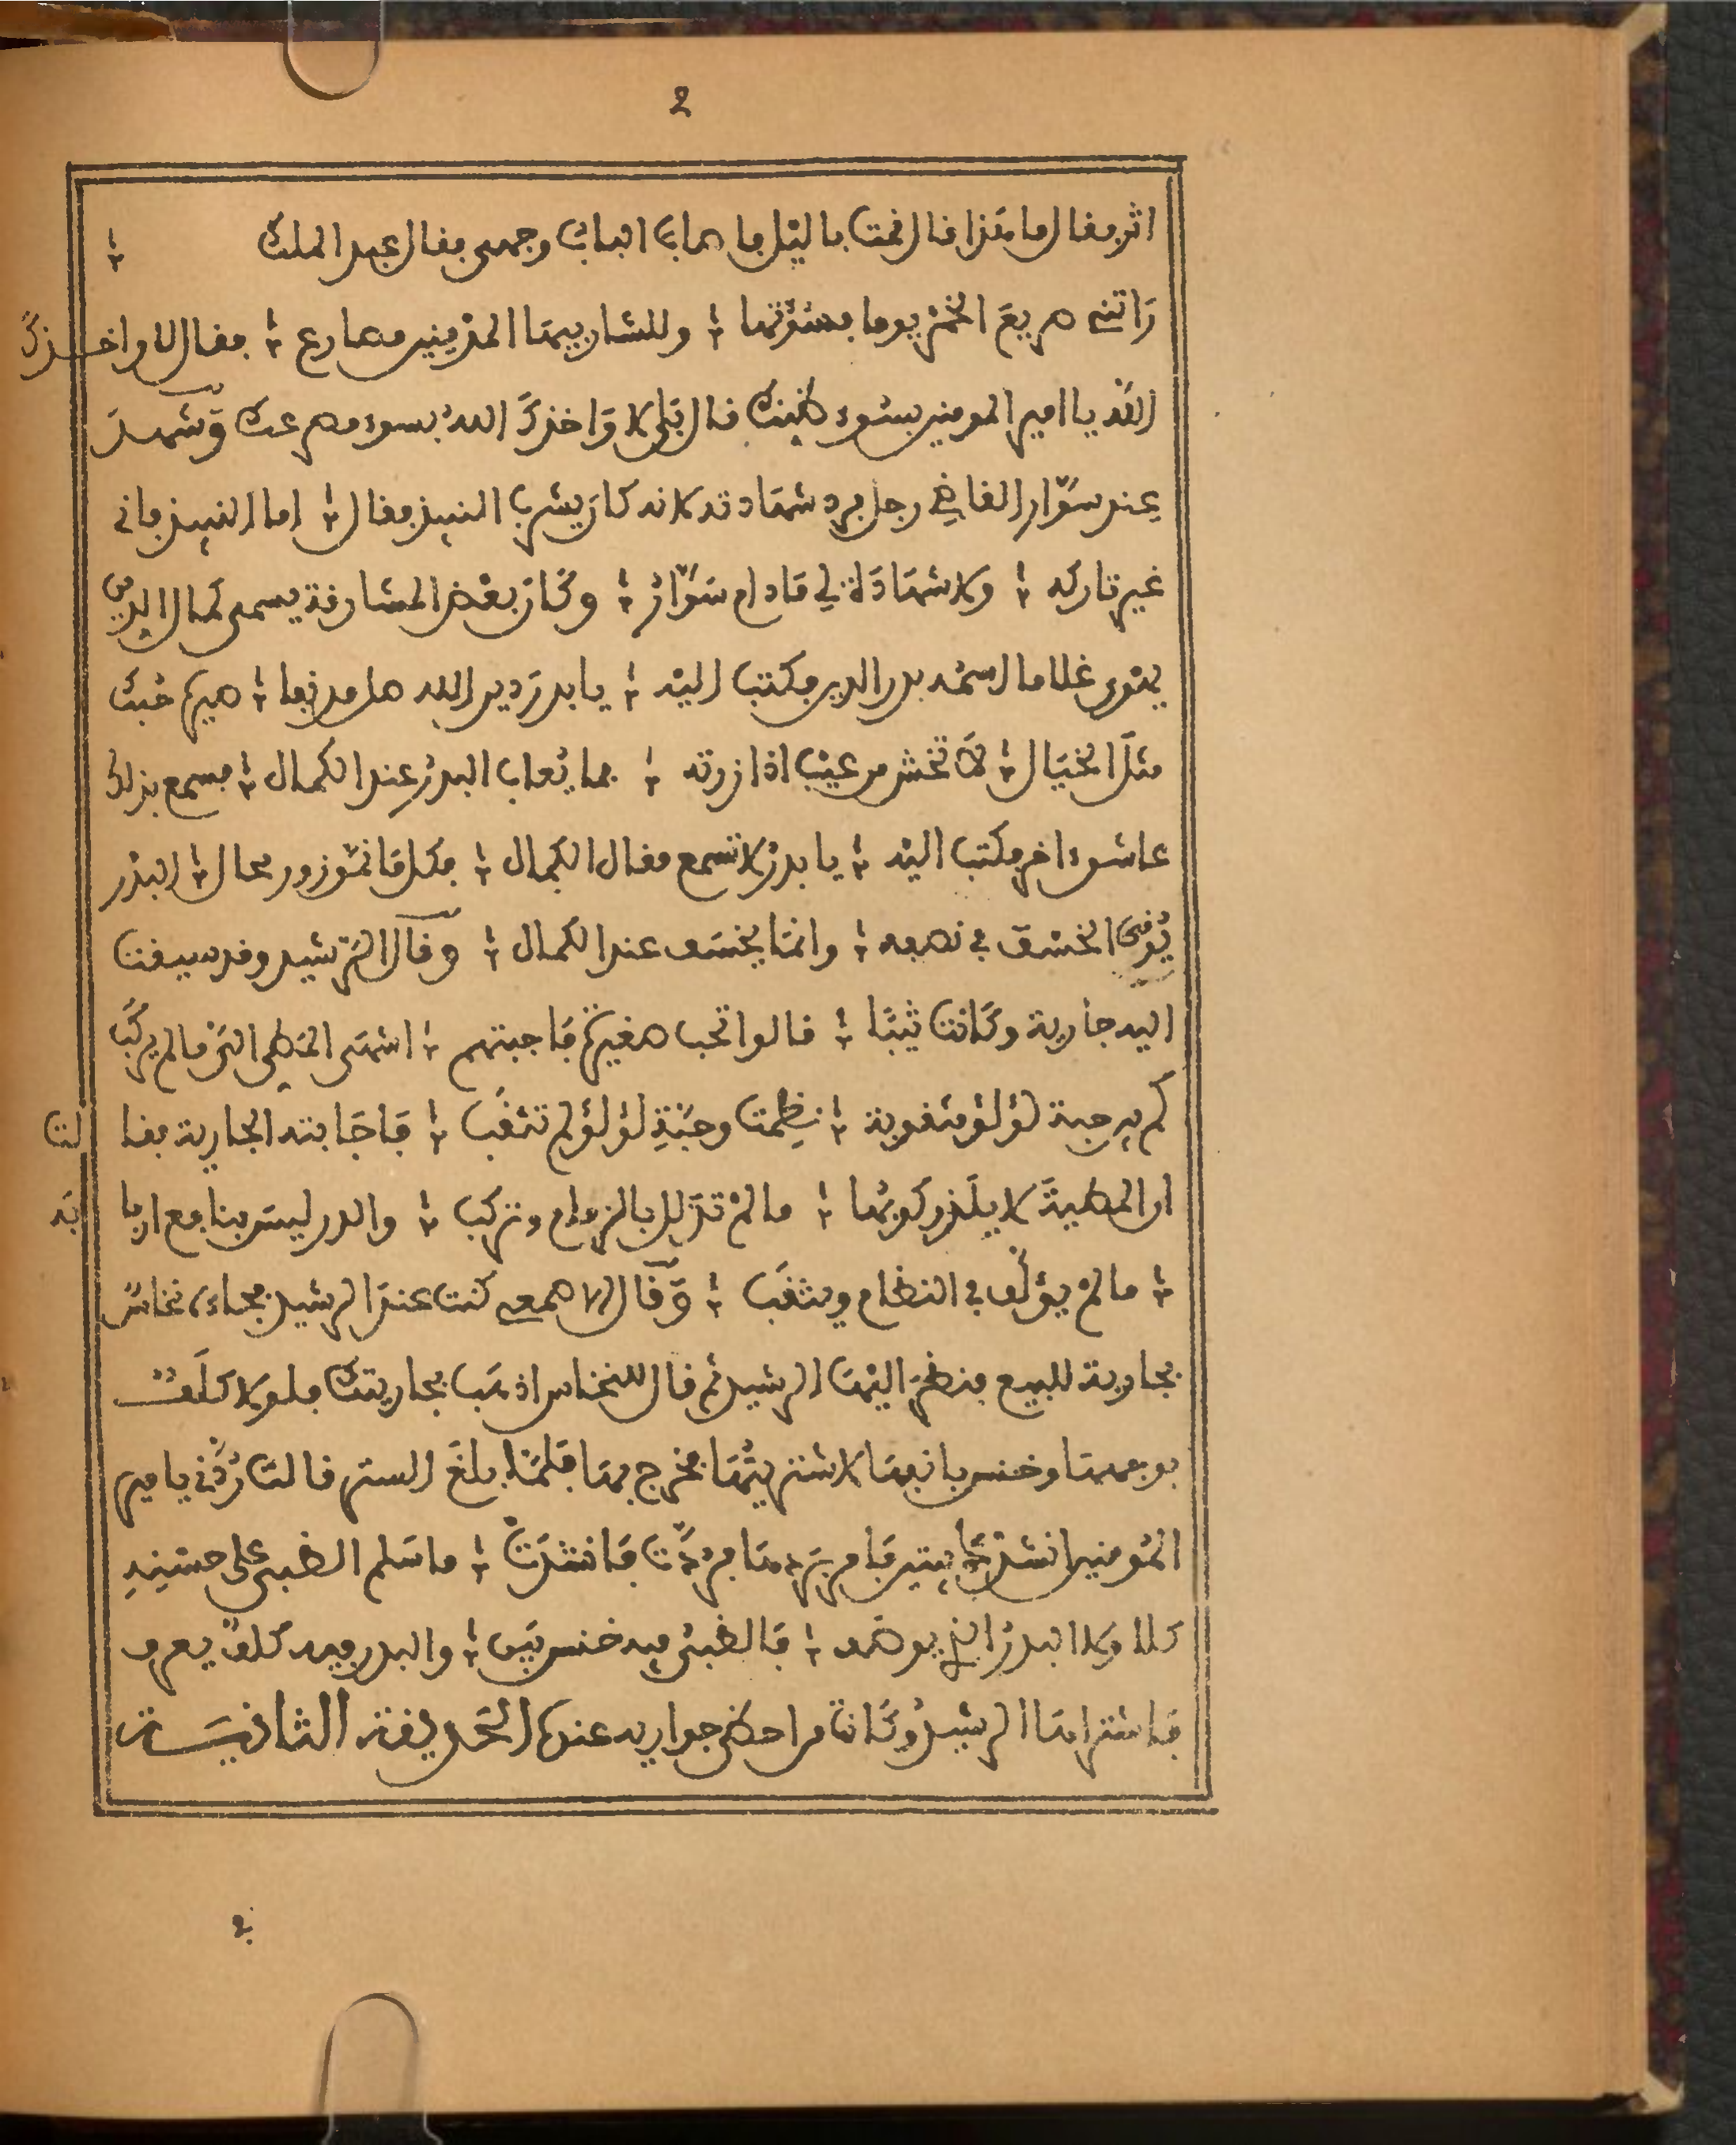 2
اثر فقال ما هذا قال قمت بالليل فاصاب الباب وجهي فقال عبد الملك ؛
رَاتني صريع الخمر يوما فسؤتها ؛ وللشاربيها المدمنين مصارع ؛ فقال لا واخذك
الله يا امير المومنين بسوء ظنك قال بلى لا وَاخذكَ اللهُ بسوء مصرعك وَشهدَ
عند سَوّار القاضي رجل فرد شهادته لانه كان يشرب النبيذ فقال ؛ اما النبيذ فاني
غير تاركه ؛ ولا شهادَة لي مَا دام سَوّارُ ؛ وكَان بعْض المشارقة يسمى كمال الدين
يهْوى غلاما اسمُه بدر الدين فكتب اليْه ؛ يا بدرَ دين الله هل مدنفا ؛ صيره حُبك
مثلَ الخيَال ؛ لا تخش من عيْب اذا زرته ؛ فما يُعاب البدرُ عند الكمال ؛ فسمع بذلك
عاشق اخر فكتب اليْه ؛ يا بدرُ لا تسمع مقال الكمال ؛ فكل مَا نمّق زور محال ؛ البدْر
يُوفى الخسْف في نصفه ؛ وانمَا يخسَف عند الكمال ؛ وقال الرَشيد وقد سيقت
اليه جارية وكَانت ثيبًا ؛ قالوا تحب صغيرة فَاجبتهم ؛ اشهى المَطي اليَّ ما لم يركبَ
كم بين حبة لؤلؤ مثقوبة ؛ نظمت وحَبّةِ لؤلؤ لم تثقبَ ؛ فَاجَابته الجارية فقالت
ان المطيةَ لا يلَذ ركوبُها ؛ ما لمْ تذَلل بالزمام وتركب ؛ والدر ليسَ بنافع اربابَه
؛ ما لمْ يؤلّف في النظام ويثقبَ ؛ وَقال الاصمعي كنت عندَ الرشيد فجاءَه نخاسٌ
بجارية للبيع فنظرَ اليْهَا الرشيد ثم قال للنخاس اذهَب بجاريتك فلولا كلَفٌ
بوجهها وخنس بانفهَا لاشتريْتُهَا فخرج بهَا فلمّا بلغَ الستر قالت رُدّني يا امير
المُومنين انشدك بيتين فَامر بَردهَا فردّت فَانشدَتْ ؛ ما سَلم الظبي على حسْنِهِ
كلا وَلا البدرُ الذي يوصَف ؛ فَالظبيُ فيه خنس بَيّن ؛ والبدر فيه كلفٌ يعرف
فَاشتراهَا الرشيدُ وكَانت من احظى جواريه عندهُ الحَديقة الثانيَة
2